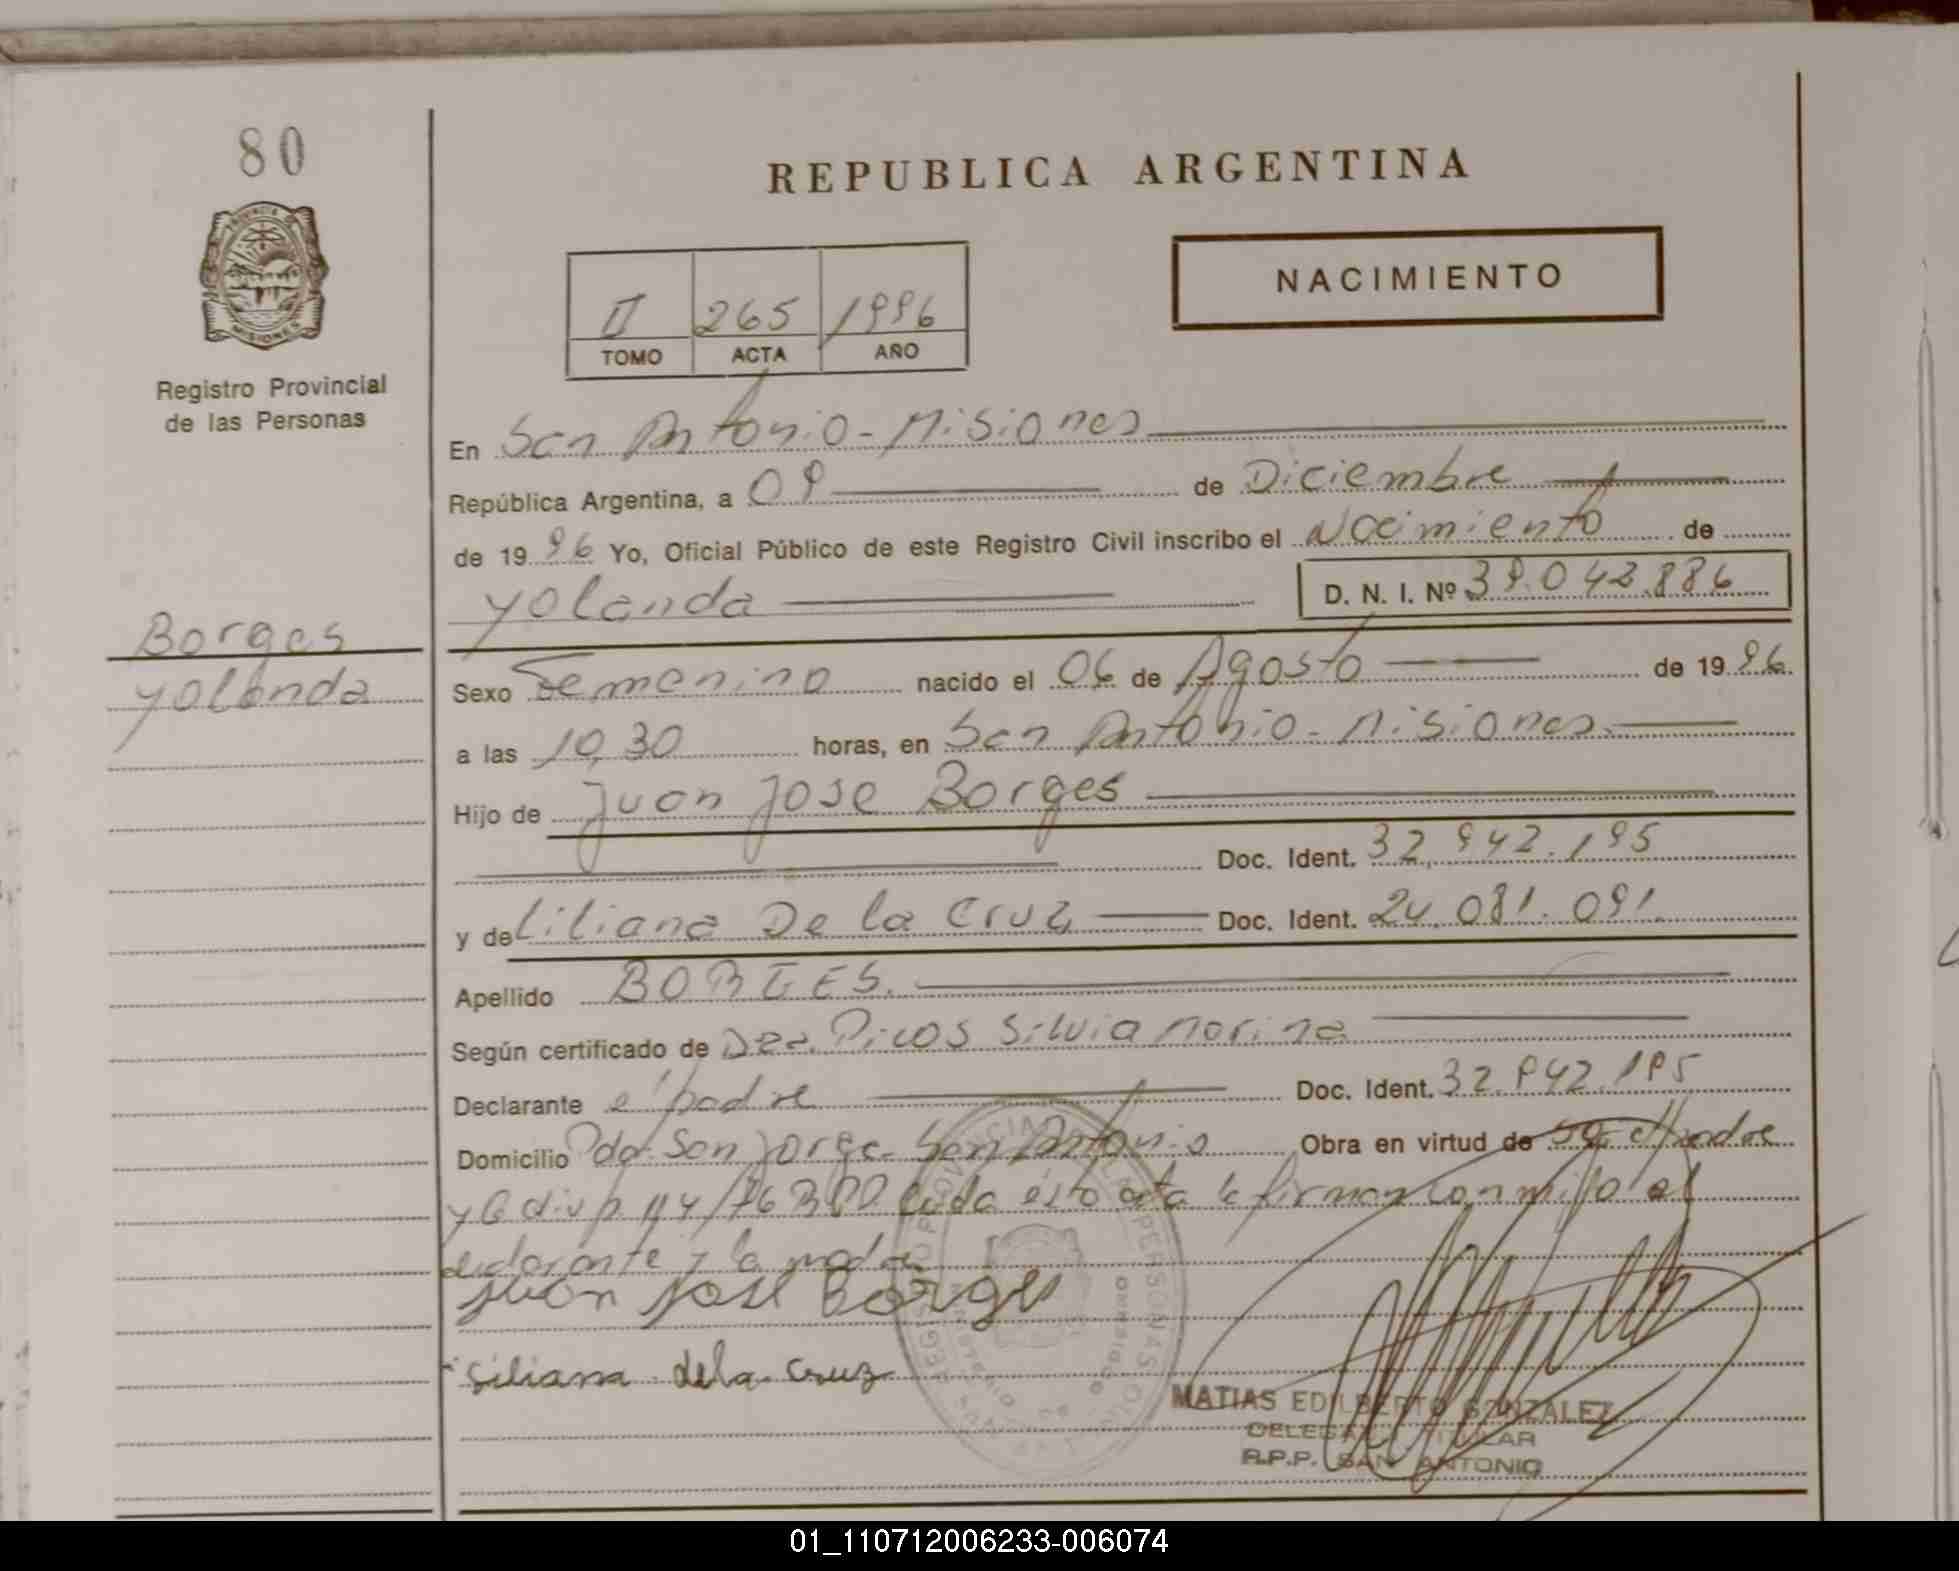 80
REPUBLICA ARGENTINA
NACIMIENTO
II 265 1996
TOMO ACTA AÑO
Registro Provincial
de las Personas
En San Antonio - Misiones
República Argentina, a 09 de Diciembre
de 19 96 Yo, Oficial Público de este Registro Civil inscribo el Nacimiento de
Yolanda D. N. I. Nº 39.043.886
Borges
Yolanda
Sexo Femenino nacido el 06 de Agosto de 19 96
a las 10,30 horas, en San Antonio - Misiones
Hijo de Juan Jose Borges
Doc. Ident. 32.942.195
y de Liliana De la Cruz Doc. Ident. 24.081.091
Apellido BORGES.
Según certificado de Dra. Silvia
Declarante el padre Doc. Ident. 32.942.195
Domicilio Pdo San Jorge - San Antonio Obra en virtud de
y la disp. 114/76 RPP Leída esta acta la firman conmigo el
declarante y la madre
Juan Jose Borges
Liliana de la Cruz
MATIAS EDILBERTO GONZALEZ
DELEGADO TITULAR
R.P.P. SAN ANTONIO
01_110712006233-006074